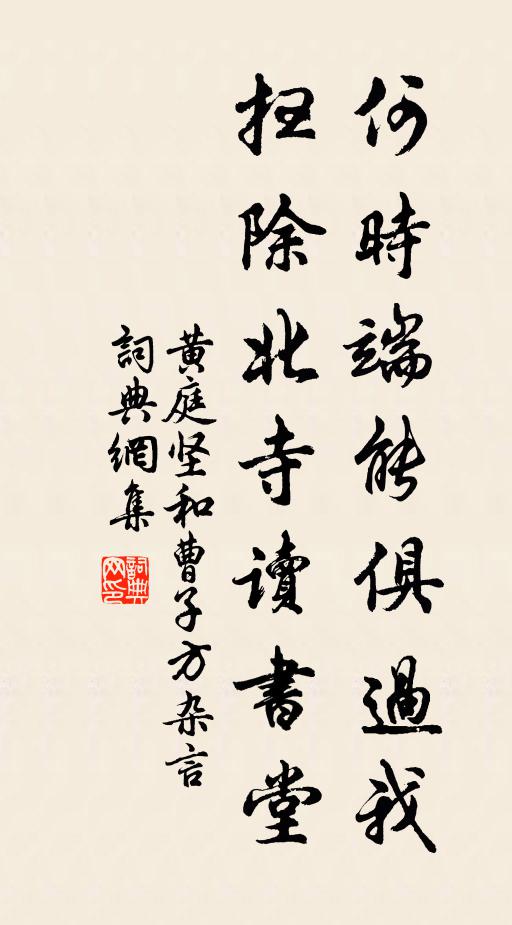 何時端能俱過我
扫除北寺讀書堂
黄庭坚和曹子方杂言
詞典網集
詞典网印